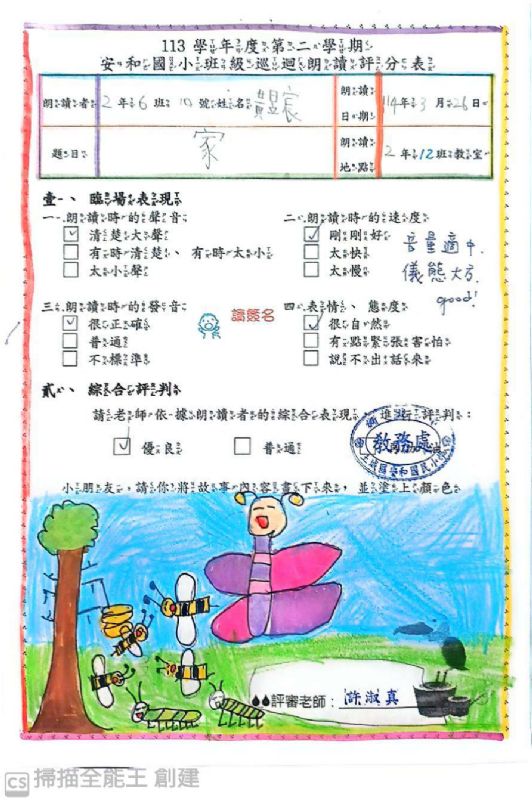 113 學年度第二學期
安和國小班級巡迴朗讀評分表
朗讀者 2年6班10號姓名 朗讀日期 114年3月26日
題目 家 朗讀地點 2年12班教室
壹、臨場表現
一、朗讀時的聲音 二、朗讀時的速度
清楚大聲 剛剛好
有時清楚、有時太小 太快
太小聲 太慢
音量適中
儀態大方
good!
三、朗讀時的發音 四、表情、態度
很正確 很自然
普通 有點緊張害怕
不標準 說不出話來
請簽名
貳、綜合評判
請老師依據朗讀者的綜合表現,進行評判:
優良 普通
教務處
小朋友,請你將故事內容畫下來,並塗上顏色
評審老師:許淑真
CS 掃描全能王 創建